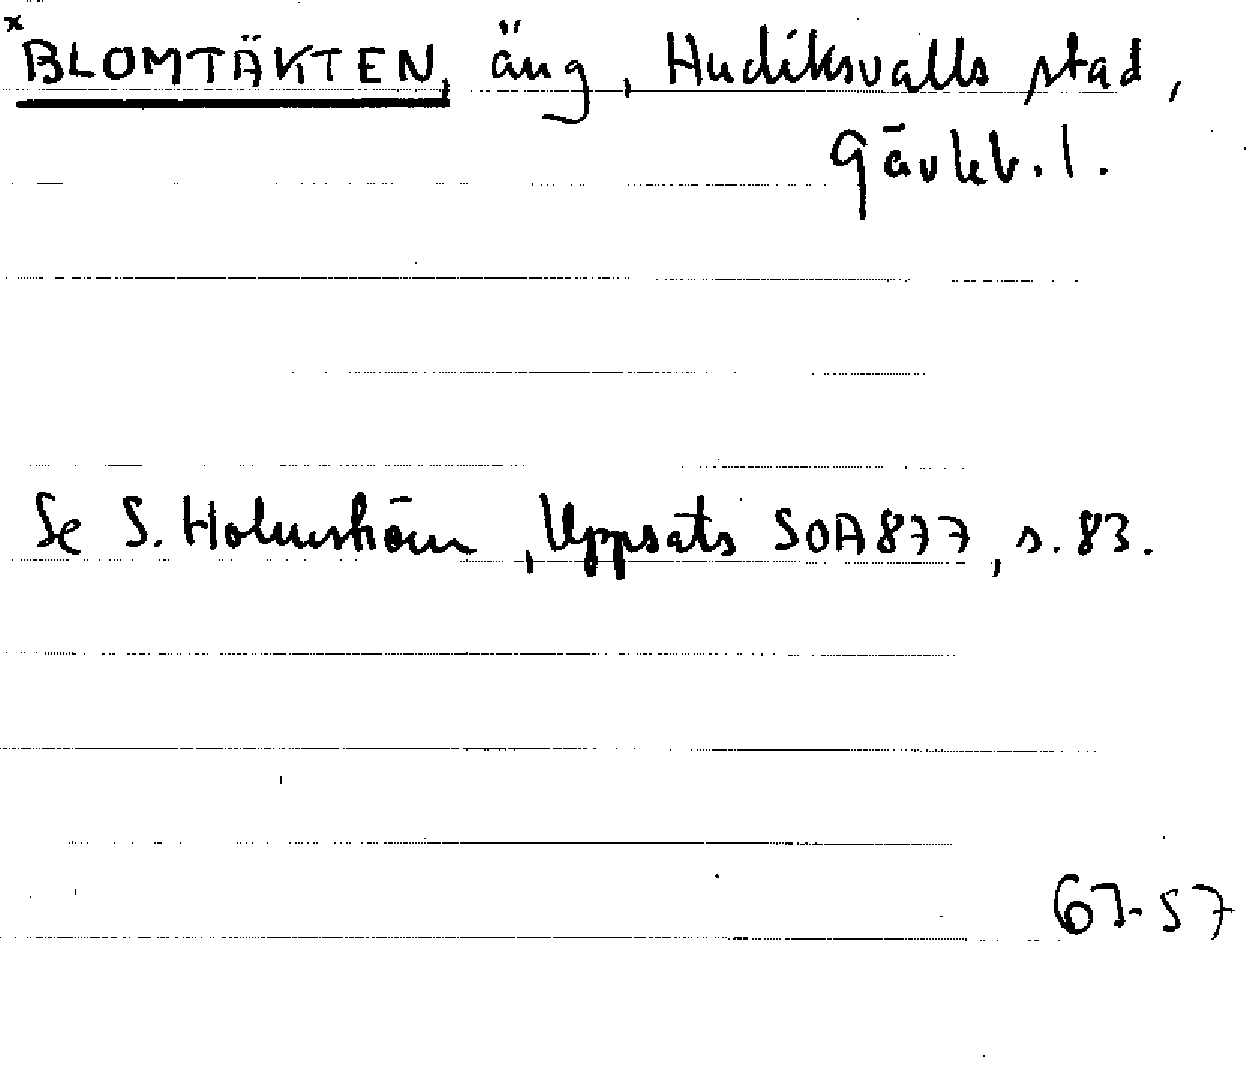 x BLOMTÄKTEN, äng, Hudiksvalls stad,
Gävleb. l.
Se S. Holmström, Uppsats SOA877, s. 83.
67-57